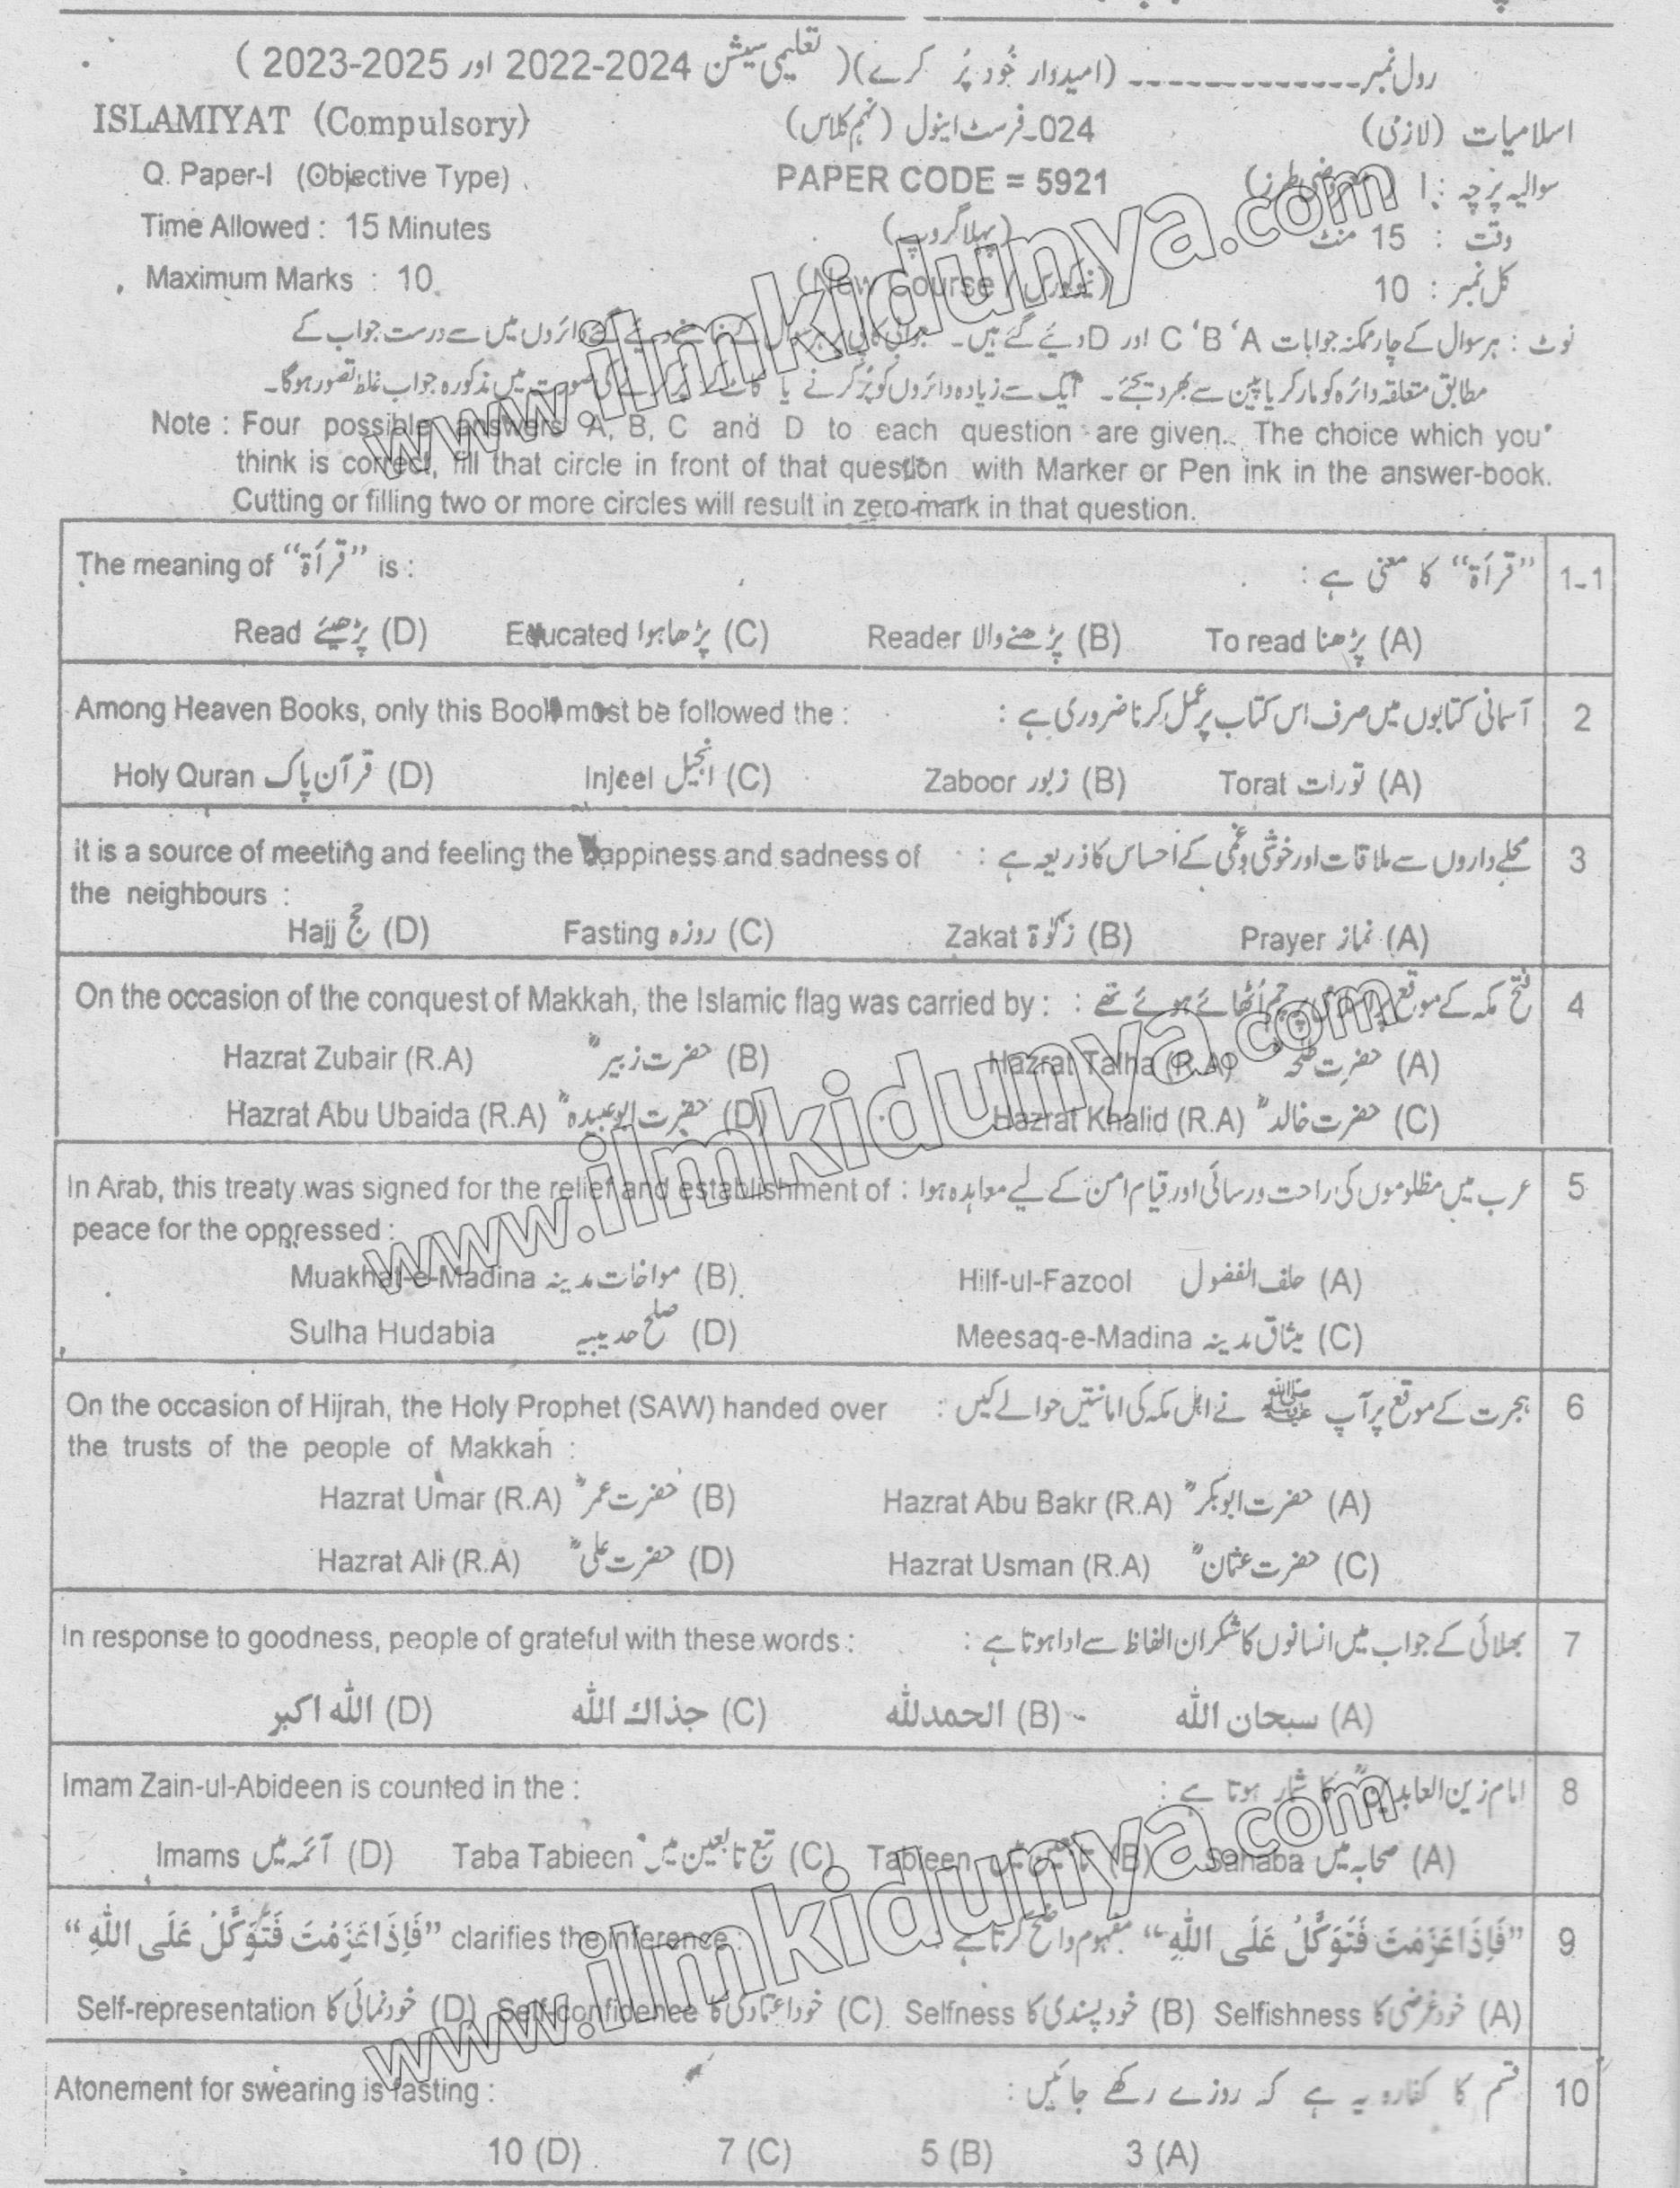 رول نمبر ------------- (امیدوار خود پُر کرے) ( تعلیمی سیشن 2024-2022 اور 2025-2023 )
اسلامیات (لازمی) 024۔فرسٹ اینول (نہم کلاس) ISLAMIYAT (Compulsory)
سوالیہ پرچہ : I PAPER CODE = 5921 Q. Paper-I (Objective Type)
وقت : 15 منٹ (پہلا گروپ) Time Allowed : 15 Minutes
کل نمبر : 10 (New Course / نیو کورس) Maximum Marks : 10
نوٹ : ہر سوال کے چار ممکنہ جوابات A ‘B ‘C اور D دیئے گئے ہیں۔ دیئے گئے دائروں میں سے درست جواب کے
مطابق متعلقہ دائرہ کو مارکر یا پین سے بھر دیجئے۔ ایک سے زیادہ دائروں کو پُر کرنے یا کی صورت میں مذکورہ جواب غلط تصور ہو گا۔
Note : Four possible answers A, B, C and D to each question are given. The choice which you
think is correct, fill that circle in front of that question with Marker or Pen ink in the answer-book.
Cutting or filling two or more circles will result in zero mark in that question.
1-1 ”قرأۃ“ کا معنی ہے : The meaning of ”قرأۃ“ is :
(A) پڑھنا To read (B) پڑھنے والا Reader (C) پڑھا ہوا Educated (D) پڑھیئے Read
2 آسمانی کتابوں میں صرف اس کتاب پر عمل کرنا ضروری ہے : Among Heaven Books, only this Book most be followed the :
(A) تورات Torat (B) زبور Zaboor (C) انجیل Injeel (D) قرآن پاک Holy Quran
3 محلے داروں سے ملاقات اور خوشی و غمی کے احساس کا ذریعہ ہے : it is a source of meeting and feeling the happiness and sadness of
the neighbours :
(A) نماز Prayer (B) زکوٰۃ Zakat (C) روزہ Fasting (D) حج Hajj
4 فتح مکہ کے موقع پر اسلامی پرچم اُٹھائے ہوئے تھے : On the occasion of the conquest of Makkah, the Islamic flag was carried by :
(A) حضرت طلحہؓ Hazrat Talha (R.A) (B) حضرت زبیرؓ Hazrat Zubair (R.A)
(C) حضرت خالدؓ Hazrat Khalid (R.A) (D) حضرت ابو عبیدہؓ Hazrat Abu Ubaida (R.A)
5 عرب میں مظلوموں کی راحت و رسائی اور قیام امن کے لیے معاہدہ ہوا : In Arab, this treaty was signed for the relief and establishment of
peace for the oppressed :
(A) حلف الفضول Hilf-ul-Fazool (B) مواخات مدینہ Muakhat-e-Madina
(C) میثاق مدینہ Meesaq-e-Madina (D) صلح حدیبیہ Sulha Hudabia
6 ہجرت کے موقع پر آپ ﷺ نے اہل مکہ کی امانتیں حوالے کیں : On the occasion of Hijrah, the Holy Prophet (SAW) handed over
the trusts of the people of Makkah :
(A) حضرت ابوبکرؓ Hazrat Abu Bakr (R.A) (B) حضرت عمرؓ Hazrat Umar (R.A)
(C) حضرت عثمانؓ Hazrat Usman (R.A) (D) حضرت علیؓ Hazrat Ali (R.A)
7 بھلائی کے جواب میں انسانوں کا شکر ان الفاظ سے ادا ہوتا ہے : In response to goodness, people of grateful with these words :
(A) سبحان اللہ (B) الحمدللہ (C) جذاک اللہ (D) اللہ اکبر
8 امام زین العابدینؒ کا شمار ہوتا ہے : Imam Zain-ul-Abideen is counted in the :
(A) صحابہ میں Sahaba (B) تابعین میں Tabieen (C) تبع تابعین میں Taba Tabieen (D) آئمہ میں Imams
9 ”فَاِذَا عَزَمْتَ فَتَوَكَّلْ عَلَى اللّٰهِ“ مفہوم واضح کرتا ہے : ”فَاِذَا عَزَمْتَ فَتَوَكَّلْ عَلَى اللّٰهِ“ clarifies the inference :
(A) خود غرضی کا Selfishness (B) خود پسندی کا Selfness (C) خود اعتمادی کا Self-confidence (D) خود نمائی کا Self-representation
10 قسم کا کفارہ یہ ہے کہ روزے رکھے جائیں : Atonement for swearing is fasting :
(A) 3 (B) 5 (C) 7 (D) 10
www.ilmkidunya.com
www.ilmkidunya.com
www.ilmkidunya.com